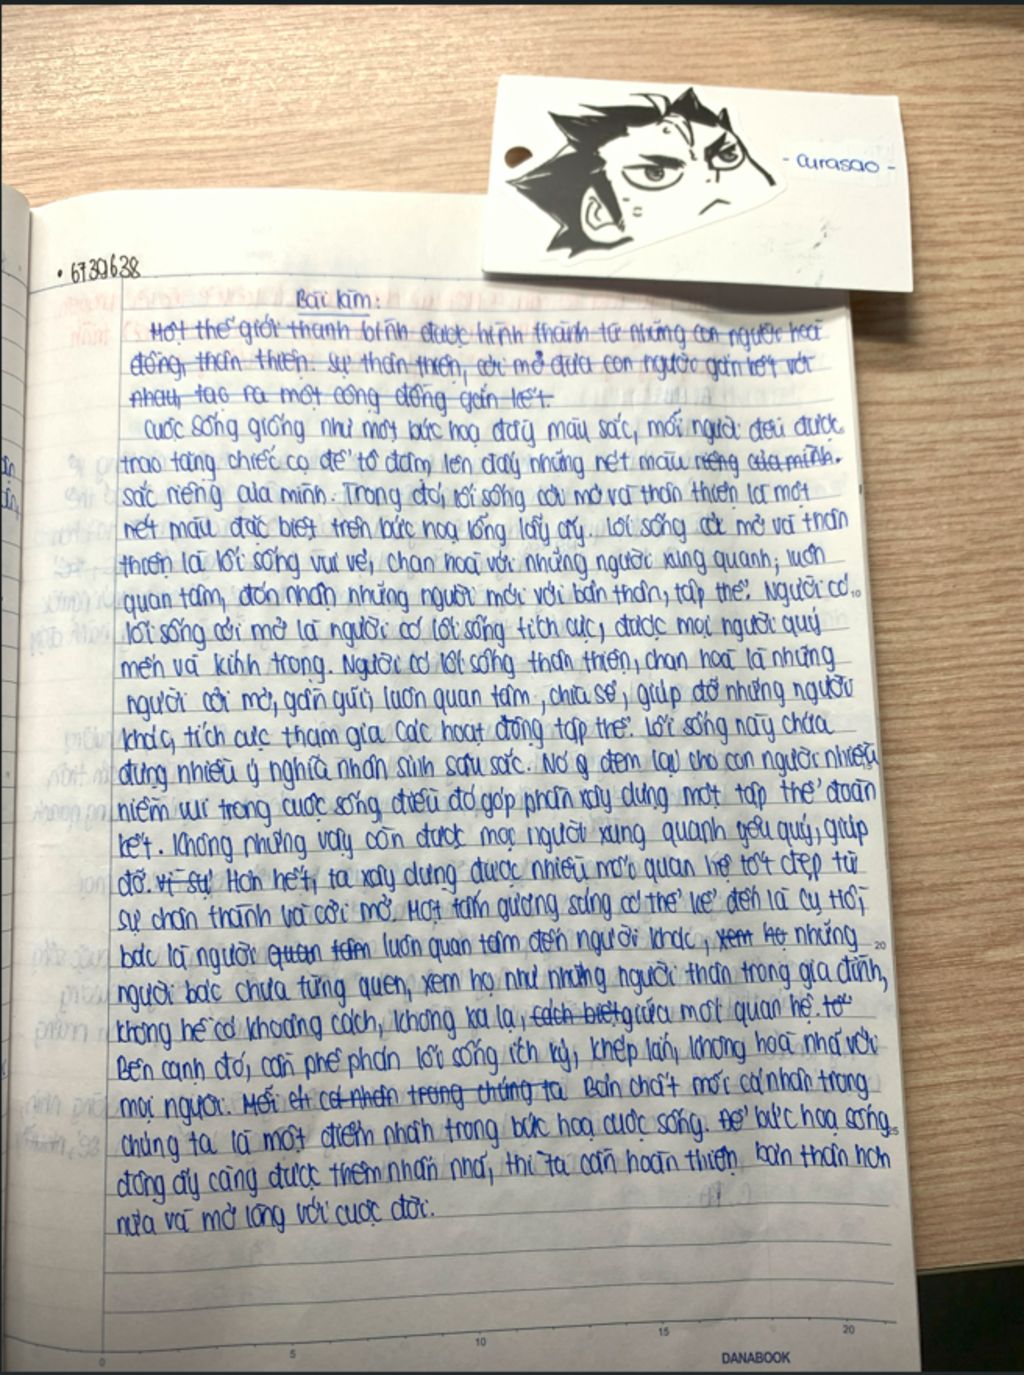 - curasao -
• 6739638
Bài làm:
Một thế giới thanh bình được hình thành từ những con người hoà
đồng, thân thiện. Sự thân thiện, cởi mở đưa con người gắn kết với
nhau, tạo ra một cộng đồng gắn kết.
Cuộc sống giống như một bức hoạ đầy màu sắc, mỗi người đều được
trao tặng chiếc cọ để tô đậm lên đấy những nét màu riêng của mình.
sắc riêng của mình. Trong đó, lối sống cởi mở và thân thiện là một
nét màu đặc biệt trên bức hoạ lộng lẫy ấy. Lối sống cởi mở và thân
thiện là lối sống vui vẻ, chan hoà với những người xung quanh; luôn
quan tâm, đón nhận những người mới với bản thân, tập thể. Người có
10
lối sống cởi mở là người có lối sống tích cực, được mọi người quý
mến và kính trọng. Người có lối sống thân thiện, chan hoà là những
người cởi mở, gần gũi, luôn quan tâm, chia sẻ, giúp đỡ những người
khác, tích cực tham gia các hoạt động tập thể. Lối sống này chứa
đựng nhiều ý nghĩa nhân sinh sâu sắc. Nó đem lại cho con người nhiều
niềm vui trong cuộc sống, điều đó góp phần xây dựng một tập thể đoàn
kết. Không những vậy còn được mọi người xung quanh yêu quý, giúp
đỡ. vì sự Hơn hết, ta xây dựng được nhiều mối quan hệ tốt đẹp từ
sự chân thành và cởi mở. Một tấm gương sáng có thể kể đến là cụ Hồ,
bác là người quan tâm luôn quan tâm đến người khác, xem họ những
20
người bác chưa từng quen, xem họ như những người thân trong gia đình,
không hề có khoảng cách, không xa lạ, cách biệt giữa mối quan hệ.
Bên cạnh đó, cần phê phán lối sống ích kỷ, khép kín, không hoà nhã với
mọi người. Mỗi cá nhân trong chúng ta Bản chất mỗi cá nhân trong
chúng ta là một điểm nhấn trong bức hoạ cuộc sống. Để bức hoạ sống
25
động ấy càng được thêm nhấn nhá, thì ta cần hoàn thiện bản thân hơn
nữa và mở lòng với cuộc đời.
0 5 10 15 20
DANABOOK